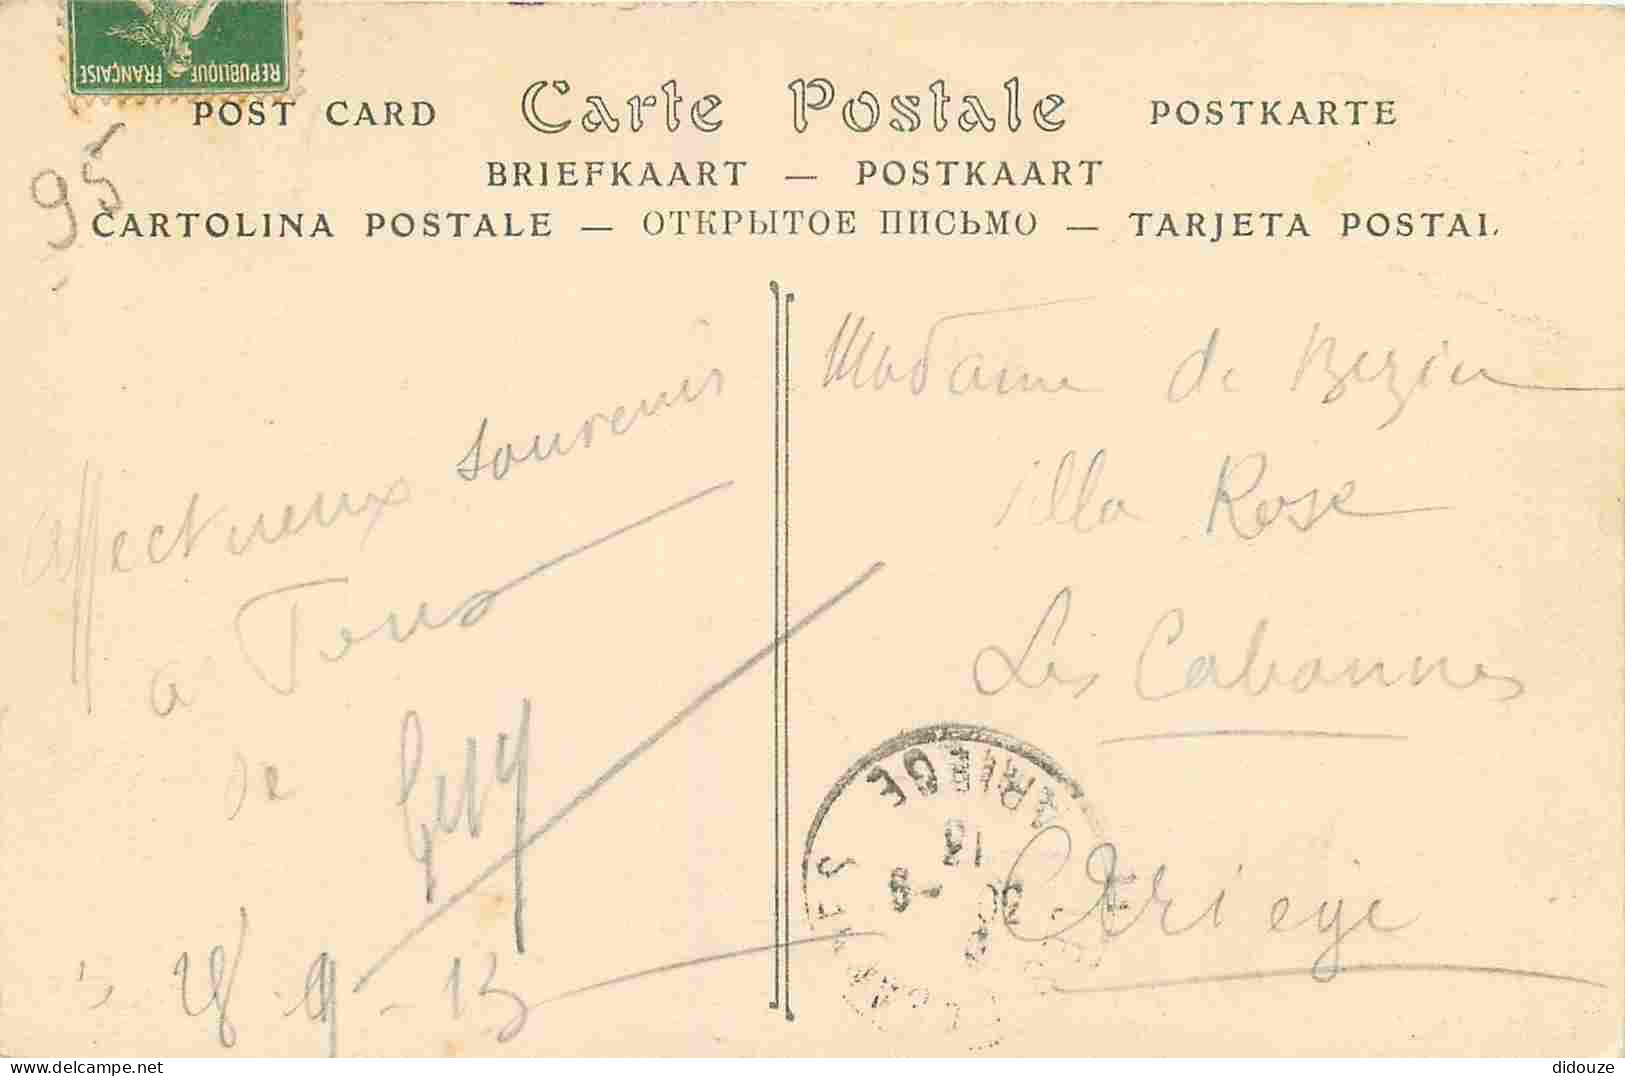 REPUBLIQUE FRANÇAISE
POST CARD Carte Postale POSTKARTE
BRIEFKAART — POSTKAART
CARTOLINA POSTALE — ОТКРЫТОЕ ПИСЬМО — TARJETA POSTAL
95
Affectueux souvenir
a Tous
de
28-9-13
Madame de Bezin
villa Rose
Les Cabannes
Ariege
ARIEGE
didouze